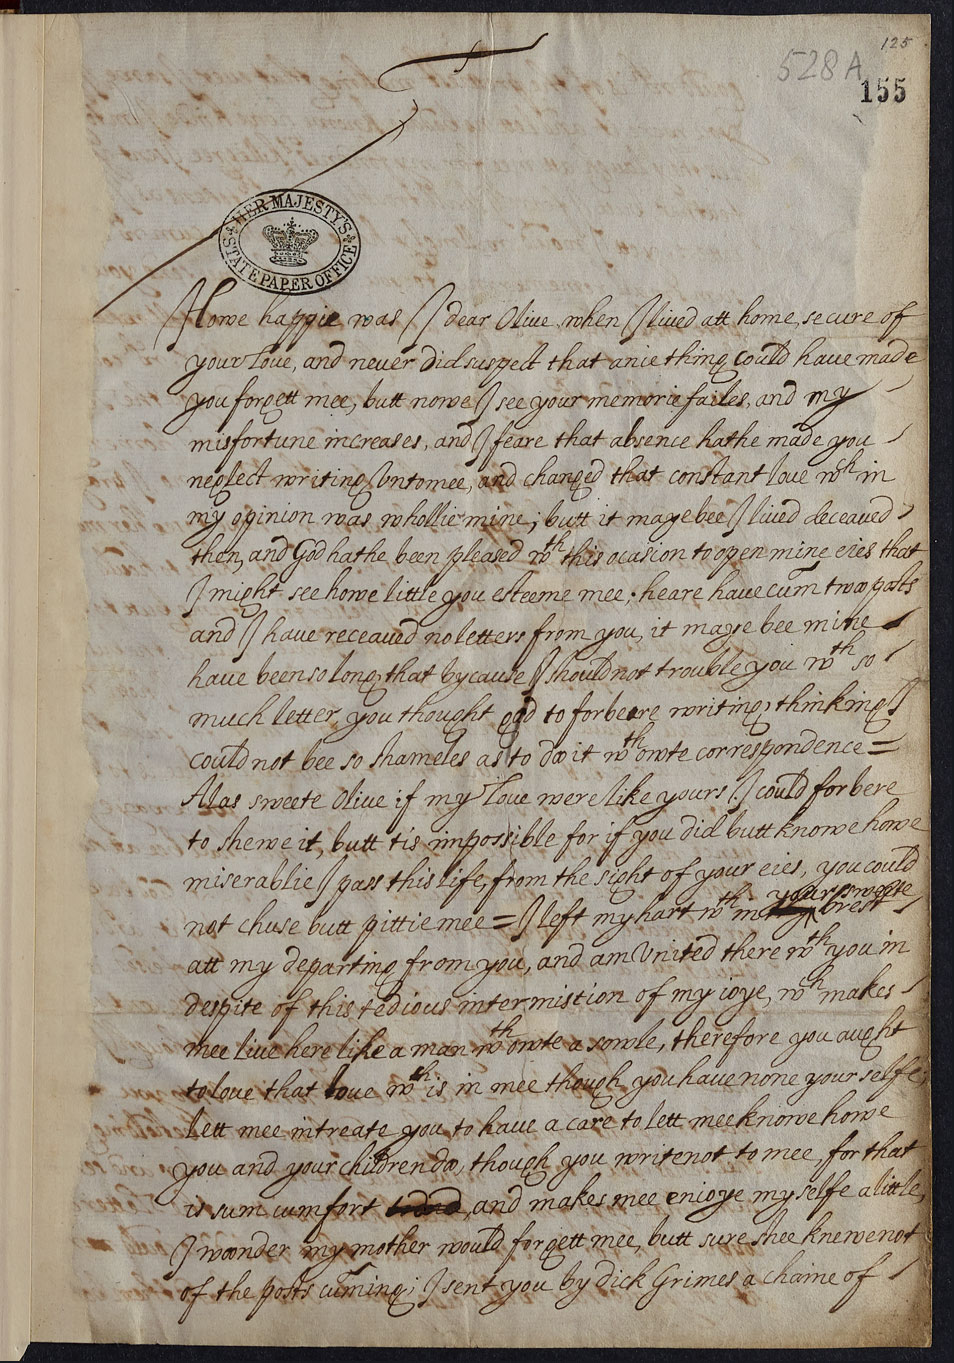 125
528A
155
HER MAJESTY'S
STATE PAPER OFFICE
Howe happie was I dear Olive when I lived att home, secure of
your Love, and never did suspect that anie thing could have made
you forgett mee, butt nowe I see your memorie failes, and my
misfortune increases, and I feare that absence hathe made you
neglect writing Unto mee, and changed that constant love wch in
my opinion was whollie mine; butt it maye bee I lived deceaved
then, and God hathe been pleased wth this ocasion to open mine eies that
I might see howe little you esteeme mee; heare have cum twoo posts
and I have receaved no letters from you, it maye bee mine
have been so long, that bycause I should not trouble you wth so
much letter, you thought god to forbeare writing, thinking I
could not bee so shameles as to doo it wthowte correspondence =
Alas sweete Olive if my Love were like yours I could forbere
to shewe it, butt tis impossible for if you did butt knowe howe
miserablie I pass this life, from the sight of your eies, you could
not chuse butt pittie mee = I left my hart wth in your sweete brest
att my departing from you, and am United there wth you in
despite of this tedious intermistion of my ioye, wch makes
mee live here like a man wthowte a sowle, therefore you aught
to love that love wch is in mee though you have none your selfe,
Lett mee intreate you to have a care to lett mee knowe howe
you and your children doo, though you write not to mee, for that
is sum cumfort, and makes mee enioye my selfe a little,
I woonder my mother would forgett mee, butt sure shee knewe not
of the posts cuming; I sent you by Dick Grimes a chaine of